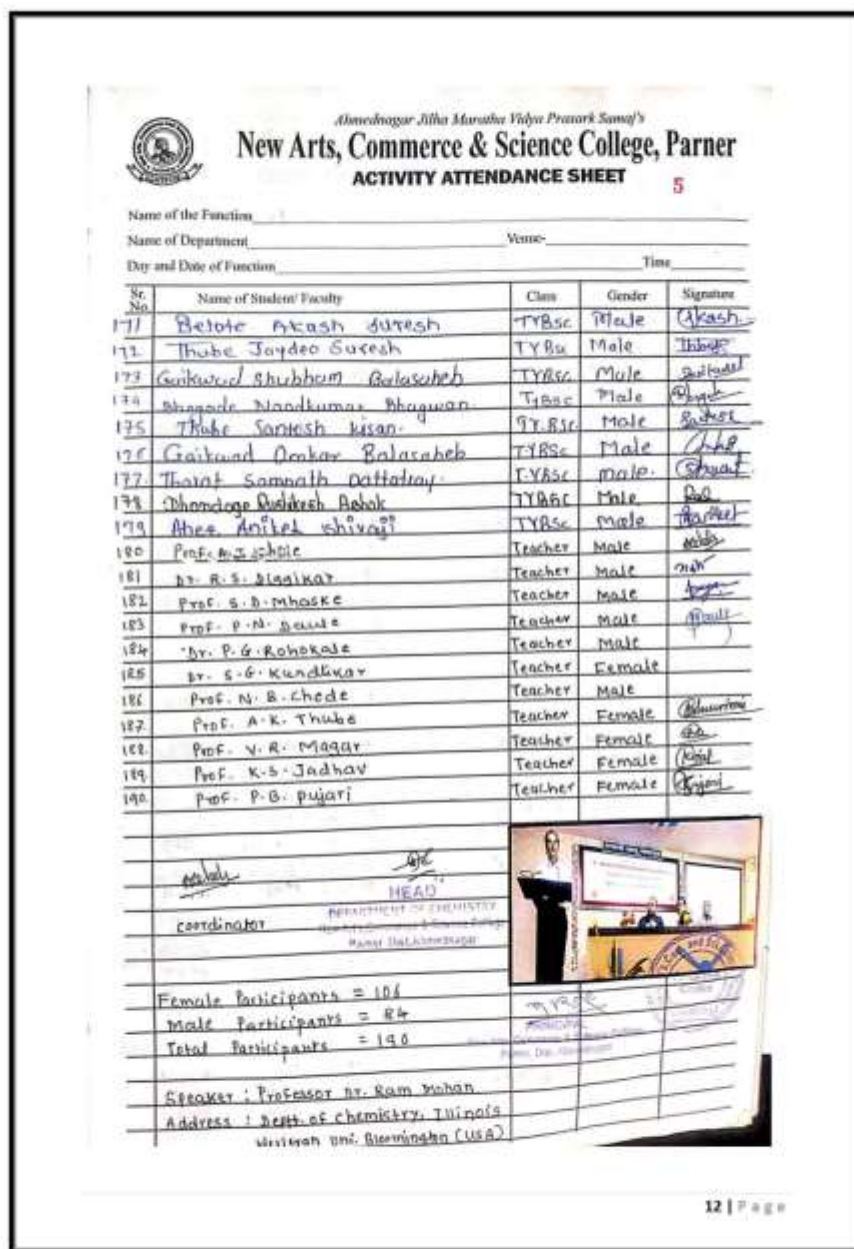 Ahmednagar Jilha Maratha Vidya Prasark Samaj's
New Arts, Commerce & Science College, Parner
ACTIVITY ATTENDANCE SHEET
5
Name of the Function
Name of Department Venue-
Day and Date of Function Time
Sr. No. Name of Student/ Faculty Class Gender Signature
171 Belote Akash Suresh TYBSc Male Akash
172 Thube Jaydeo Suresh TYBSc Male Thube
173 Gaikwad Shubham Balasaheb TYBSc Male
174 Bhagade Nandkumar Bhagwan. TYBSc Male
175 Thube Santosh kisan. TY.BSc Male
176 Gaikwad Omkar Balasaheb TYBSc Male
177. Thorat Somnath Dattatray. T.YBSc male.
178 Dhondage Rushikesh Ashok TYBSc Male
179 Aher Aniket Shivaji TYBSc Male
180 Prof. A.J. Teacher Male
181 Dr. R. S. Diggikar Teacher Male
182 Prof. S. D. Mhaske Teacher Male
183 Prof. P. N. Teacher Male
184 Dr. P. G. Rohokale Teacher Male
185 Dr. S. G. Kundlikar Teacher Female
186 Prof. N. B. Chede Teacher Male
187. Prof. A. K. Thube Teacher Female
188. Prof. V. R. Magar Teacher Female
189. Prof. K. S. Jadhav Teacher Female
190. Prof. P. B. Pujari Teacher Female
coordinator
HEAD
DEPARTMENT OF CHEMISTRY
Female Participants = 106
Male Participants = 84
Total Participants = 190
PRINCIPAL
Speaker : Professor Dr. Ram Mohan
Address : Deptt. of Chemistry, Illinois
Wesleyan Uni. Bloomington (USA)
12 | Page